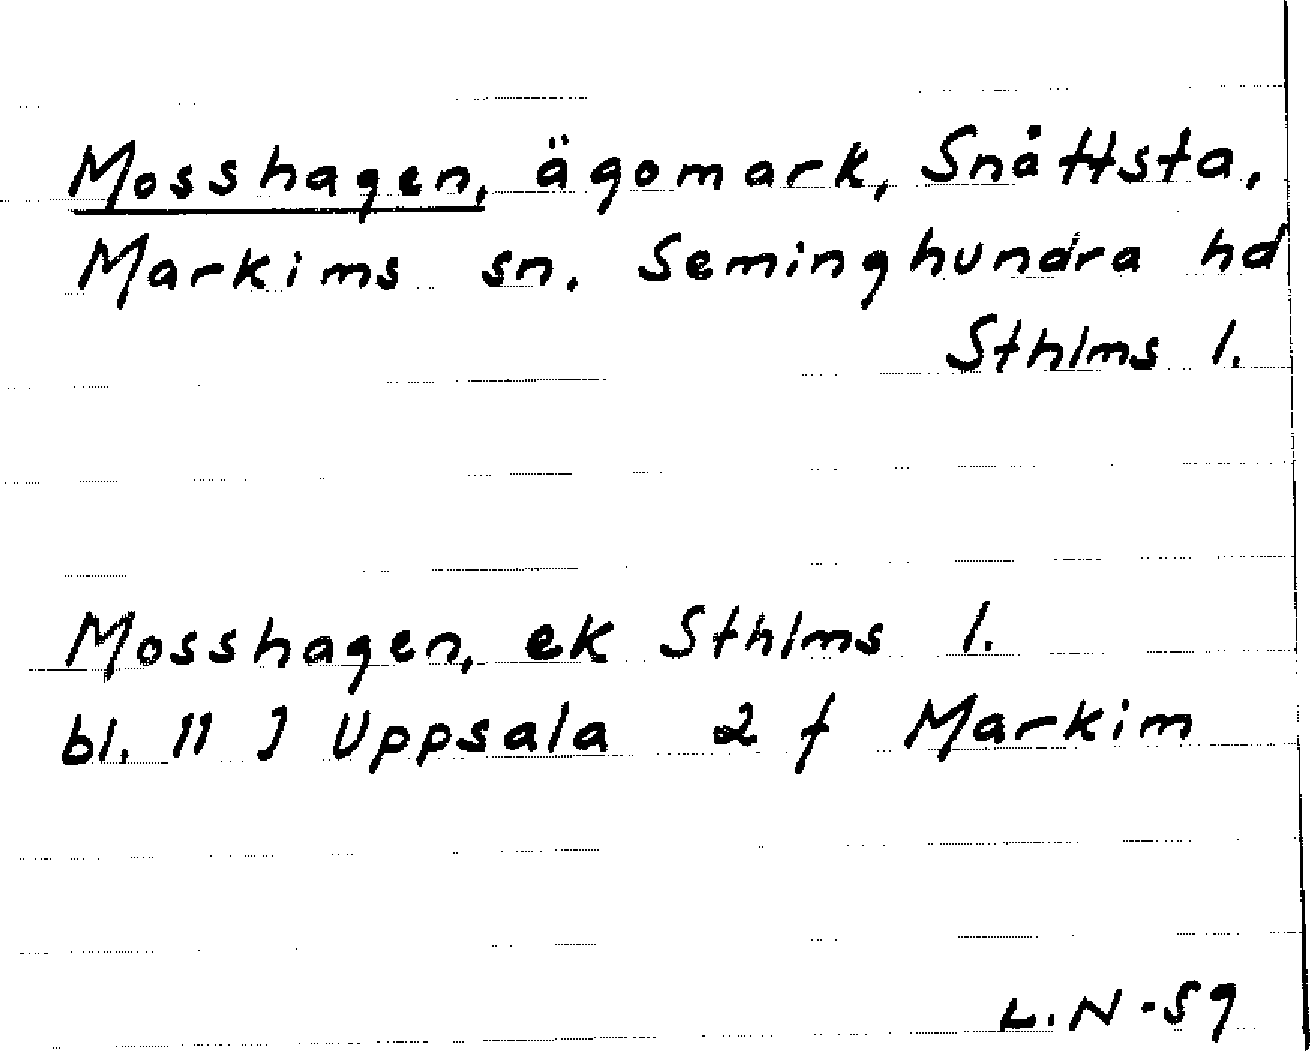 Mosshagen, ägomark, Snåttsta,
Markims sn. Seminghundra hd
Sthlms l.
Mosshagen, ek Sthlms l.
bl. 11 J Uppsala 2 f Markim
L.N-59